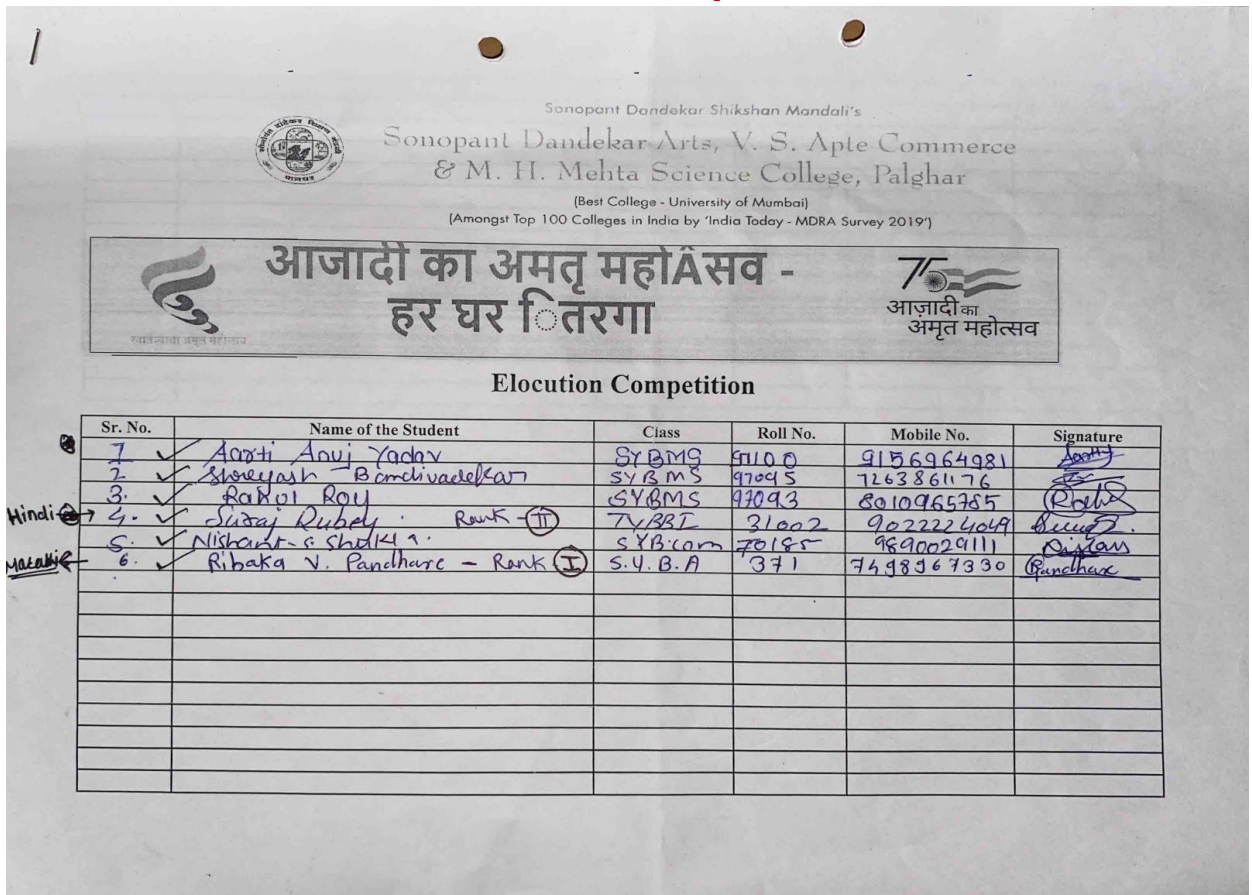 Sonopant Dandekar Shikshan Mandali's
Sonopant Dandekar Arts, V. S. Apte Commerce
& M. H. Mehta Science College, Palghar
(Best College - University of Mumbai)
(Amongst Top 100 Colleges in India by 'India Today - MDRA Survey 2019')
पालघर
आजादी का अमतृ महोÂसव -
हर घर ितरगा
75
आज़ादी का
अमृत महोत्सव
Elocution Competition
Sr. No. Name of the Student Class Roll No. Mobile No. Signature
1 ✓ Aarti Anuj Yadav SYBMS 97100 9156964981
2 ✓ Shreyash Bandivadekar SYBMS 97095 7263861176
3. ✓ Rahul Roy SYBMS 97093 8010965785
Hindi → 4. ✓ Suraj Dubey. Rank - II 31002 9022224049
5. ✓ Nishant S Shukla. SYB.com 70185 9890029111
Marathi ← 6. ✓ Ribaka V. Pandhare - Rank I S.Y.B.A 371 7498967330 Pandhare